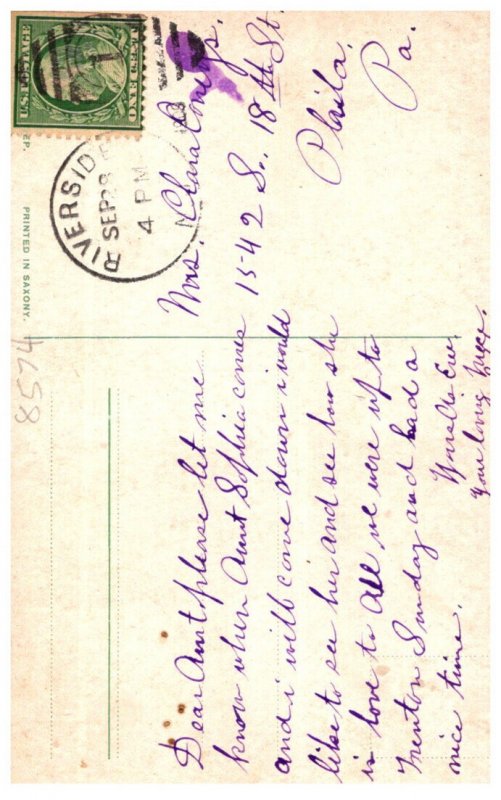 Dear Aunt please let me
know when Aunt Sophia comes
and i will come down i would
like to see her and see how she
is love to all we were up to
Trenton Sunday and had a
nice time.
Yours
Mrs. Clara
1542 S. 18th St.
Phila.
Pa.
RIVERSIDE
SEP 28
4 PM
U.S. POSTAGE
ONE CENT
1
PRINTED IN SAXONY.
8574